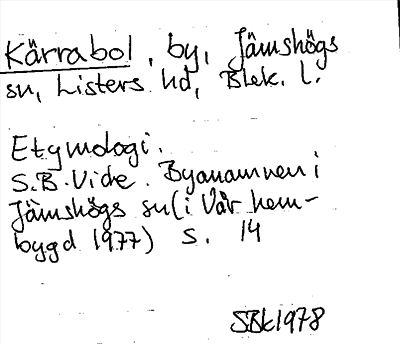 Kärrabol, by, Jämshögs
sn, Listers hd, Blek. l.
Etymologi.
S.B. Vide. Byanamnen i
Jämshögs sn (i Vår hem-
bygd 1977) s. 14
SBL 1978